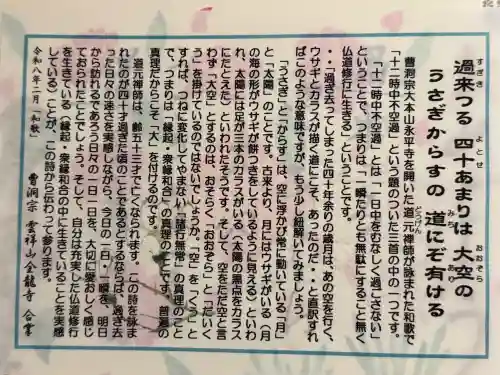 過来つる 四十あまりは 大空の
うさぎからすの 道にぞ有ける
曹洞宗大本山永平寺を開いた道元禅師が詠まれた和歌で
「十二時中不空過」という題のついた三首の中の一つです。
「十二時中不空過」とは「一日中をむなしく過ごさない」
ということで、つまりは「一瞬たりとも無駄にすること無く
仏道修行に生きる」ということです。
・「過ぎ去ってしまった四十年余りの歳月は、あの空を行く、
ウサギとカラスが描く道にこそ、あったのだ・・と直訳すれ
ばこのような意味ですが、もう少し紐解いてみましょう。
「うさぎ」と「からす」は、空に浮かび常に動いている「月」
と「太陽」のことです。古来より、月にはウサギがいる（月
の海の形がウサギが餅つきをしているように見える）といわ
れ、太陽には足が三本のカラスがいる（太陽の黒点をカラス
にたとえた）といわれたそうです。そして、空をただ空と言
わず「大空」とするのは、おそらく「おおぞら」と「だいく
う」を掛けているのではないでしょうか。「空」を「くう」と
すれば、つねに変化してやまない「諸行無常」の真理のこと
で、つまりは「縁起・衆縁和合」の真理のことです。普遍の
真理だからこそ「大」を付けるのです。
道元禅師は、齢五十三才で亡くなられます。この詩を詠ま
れたのが四十才過ぎた頃のことであるとするならば、過ぎ去
った日々の速さを実感しながら、今日の一日・一瞬を、明日
から訪れるであろう日々の一日一日を、大切に愛おしく感じ
ておられたことでしょう。そして、自分は充実した仏道修行
を生きている（縁起・衆縁和合の中に生きていることを実感
している）ことが、この詩から伝わって参ります。
令和八年二月「和歌」 曹洞宗 霊祥山金龍寺 合掌
すぎき よとせ おおぞら
みち あり
どうげん